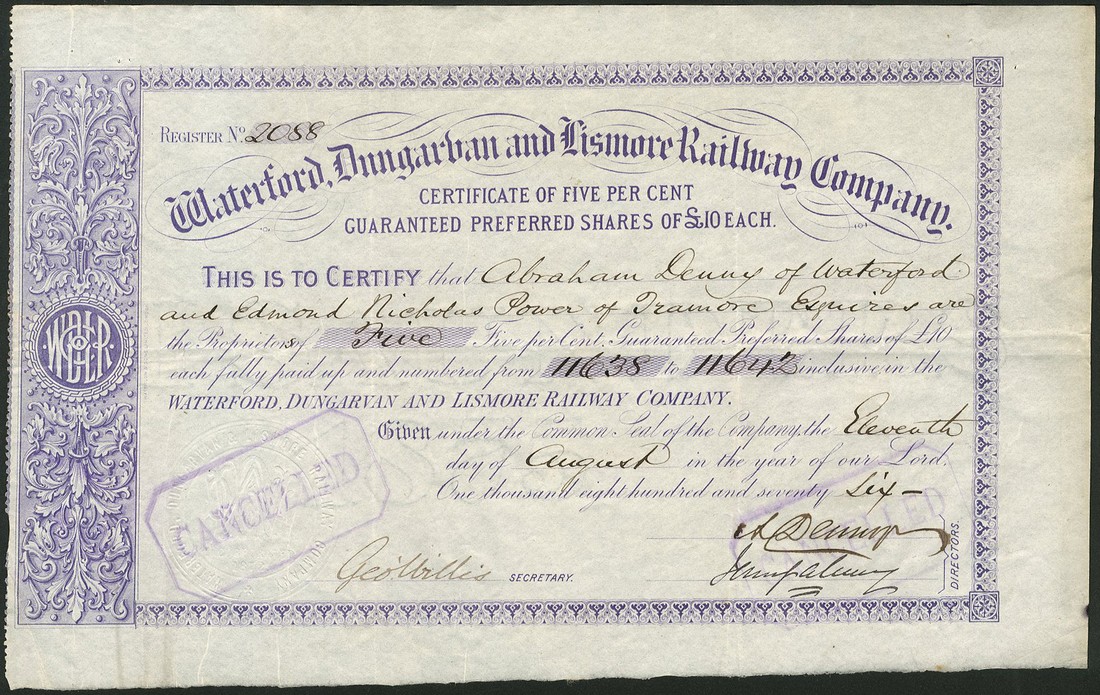 REGISTER No. 2088
Waterford, Dungarvan and Lismore Railway Company.
CERTIFICATE OF FIVE PER CENT
GUARANTEED PREFERRED SHARES OF £10 EACH.
THIS IS TO CERTIFY that Abraham Denny of Waterford
and Edmond Nicholas Power of Tramore Esquires are
the Proprietors of Five Five per Cent. Guaranteed Preferred Shares of £10
each fully paid up and numbered from 11638 to 11642 inclusive in the
WATERFORD, DUNGARVAN AND LISMORE RAILWAY COMPANY.
Given under the Common Seal of the Company, the Eleventh
day of August in the year of our Lord.
One thousand eight hundred and seventy Six
CANCELLED
CANCELLED
A Denny
Geo Willis SECRETARY.
DIRECTORS.